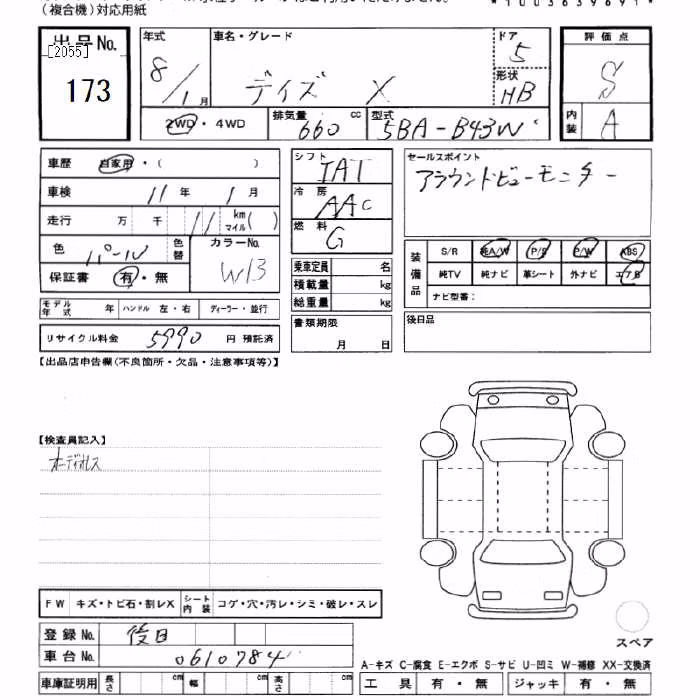 (複合機)対応用紙
*1003639691*
出品No. [2055] 173
年式 8/1月
車名・グレード デイズ X
ドア 5
形状 HB
評価点 S
内装 A
2WD・4WD
排気量 660 cc
型式 5BA-B43W
車歴 自家用・( )
車検 11年 1月
走行 万 千 11 km マイル( )
色 パール 色替
カラーNo. W13
保証書 有・無
モデル年式 年 ハンドル 左・右 ディーラー・並行
リサイクル料金 5990 円 預託済
シフト IAT
冷房 AAC
燃料 G
乗車定員 名
積載量 kg
総重量 kg
書類期限 月 日
セールスポイント
アラウンドビューモニター
装備品 S/R 純A/W P/S P/W ABS
純TV 純ナビ 革シート 外ナビ エアB
ナビ型番:
後日品
【出品店申告欄(不良箇所・欠品・注意事項等)】
【検査員記入】
オーディオレス
FW キズ・トビ石・割レX シート内装 コゲ・穴・汚レ・シミ・破レ・スレ
登録No. 後日
車台No. 0610784
車庫証明用 長さ cm 幅 cm 高さ cm
スペア
A-キズ C-腐食 E-エクボ S-サビ U-凹ミ W-補修 XX-交換済
工具 有・無 ジャッキ 有・無